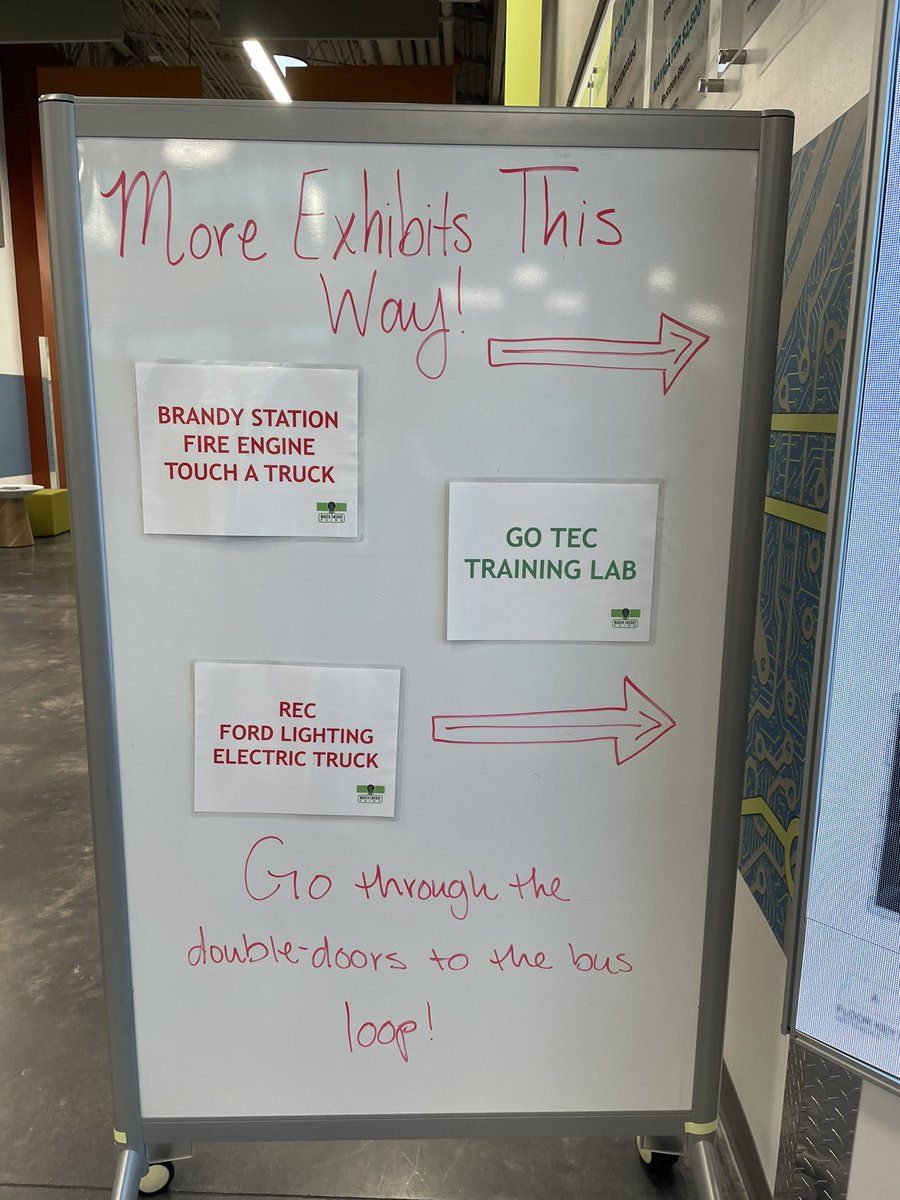 More Exhibits This
Way!
BRANDY STATION
FIRE ENGINE
TOUCH A TRUCK
MAKER ENERGY
GO TEC
TRAINING LAB
MAKER ENERGY
REC
FORD LIGHTING
ELECTRIC TRUCK
MAKER ENERGY
Go through the
double-doors to the bus
loop!